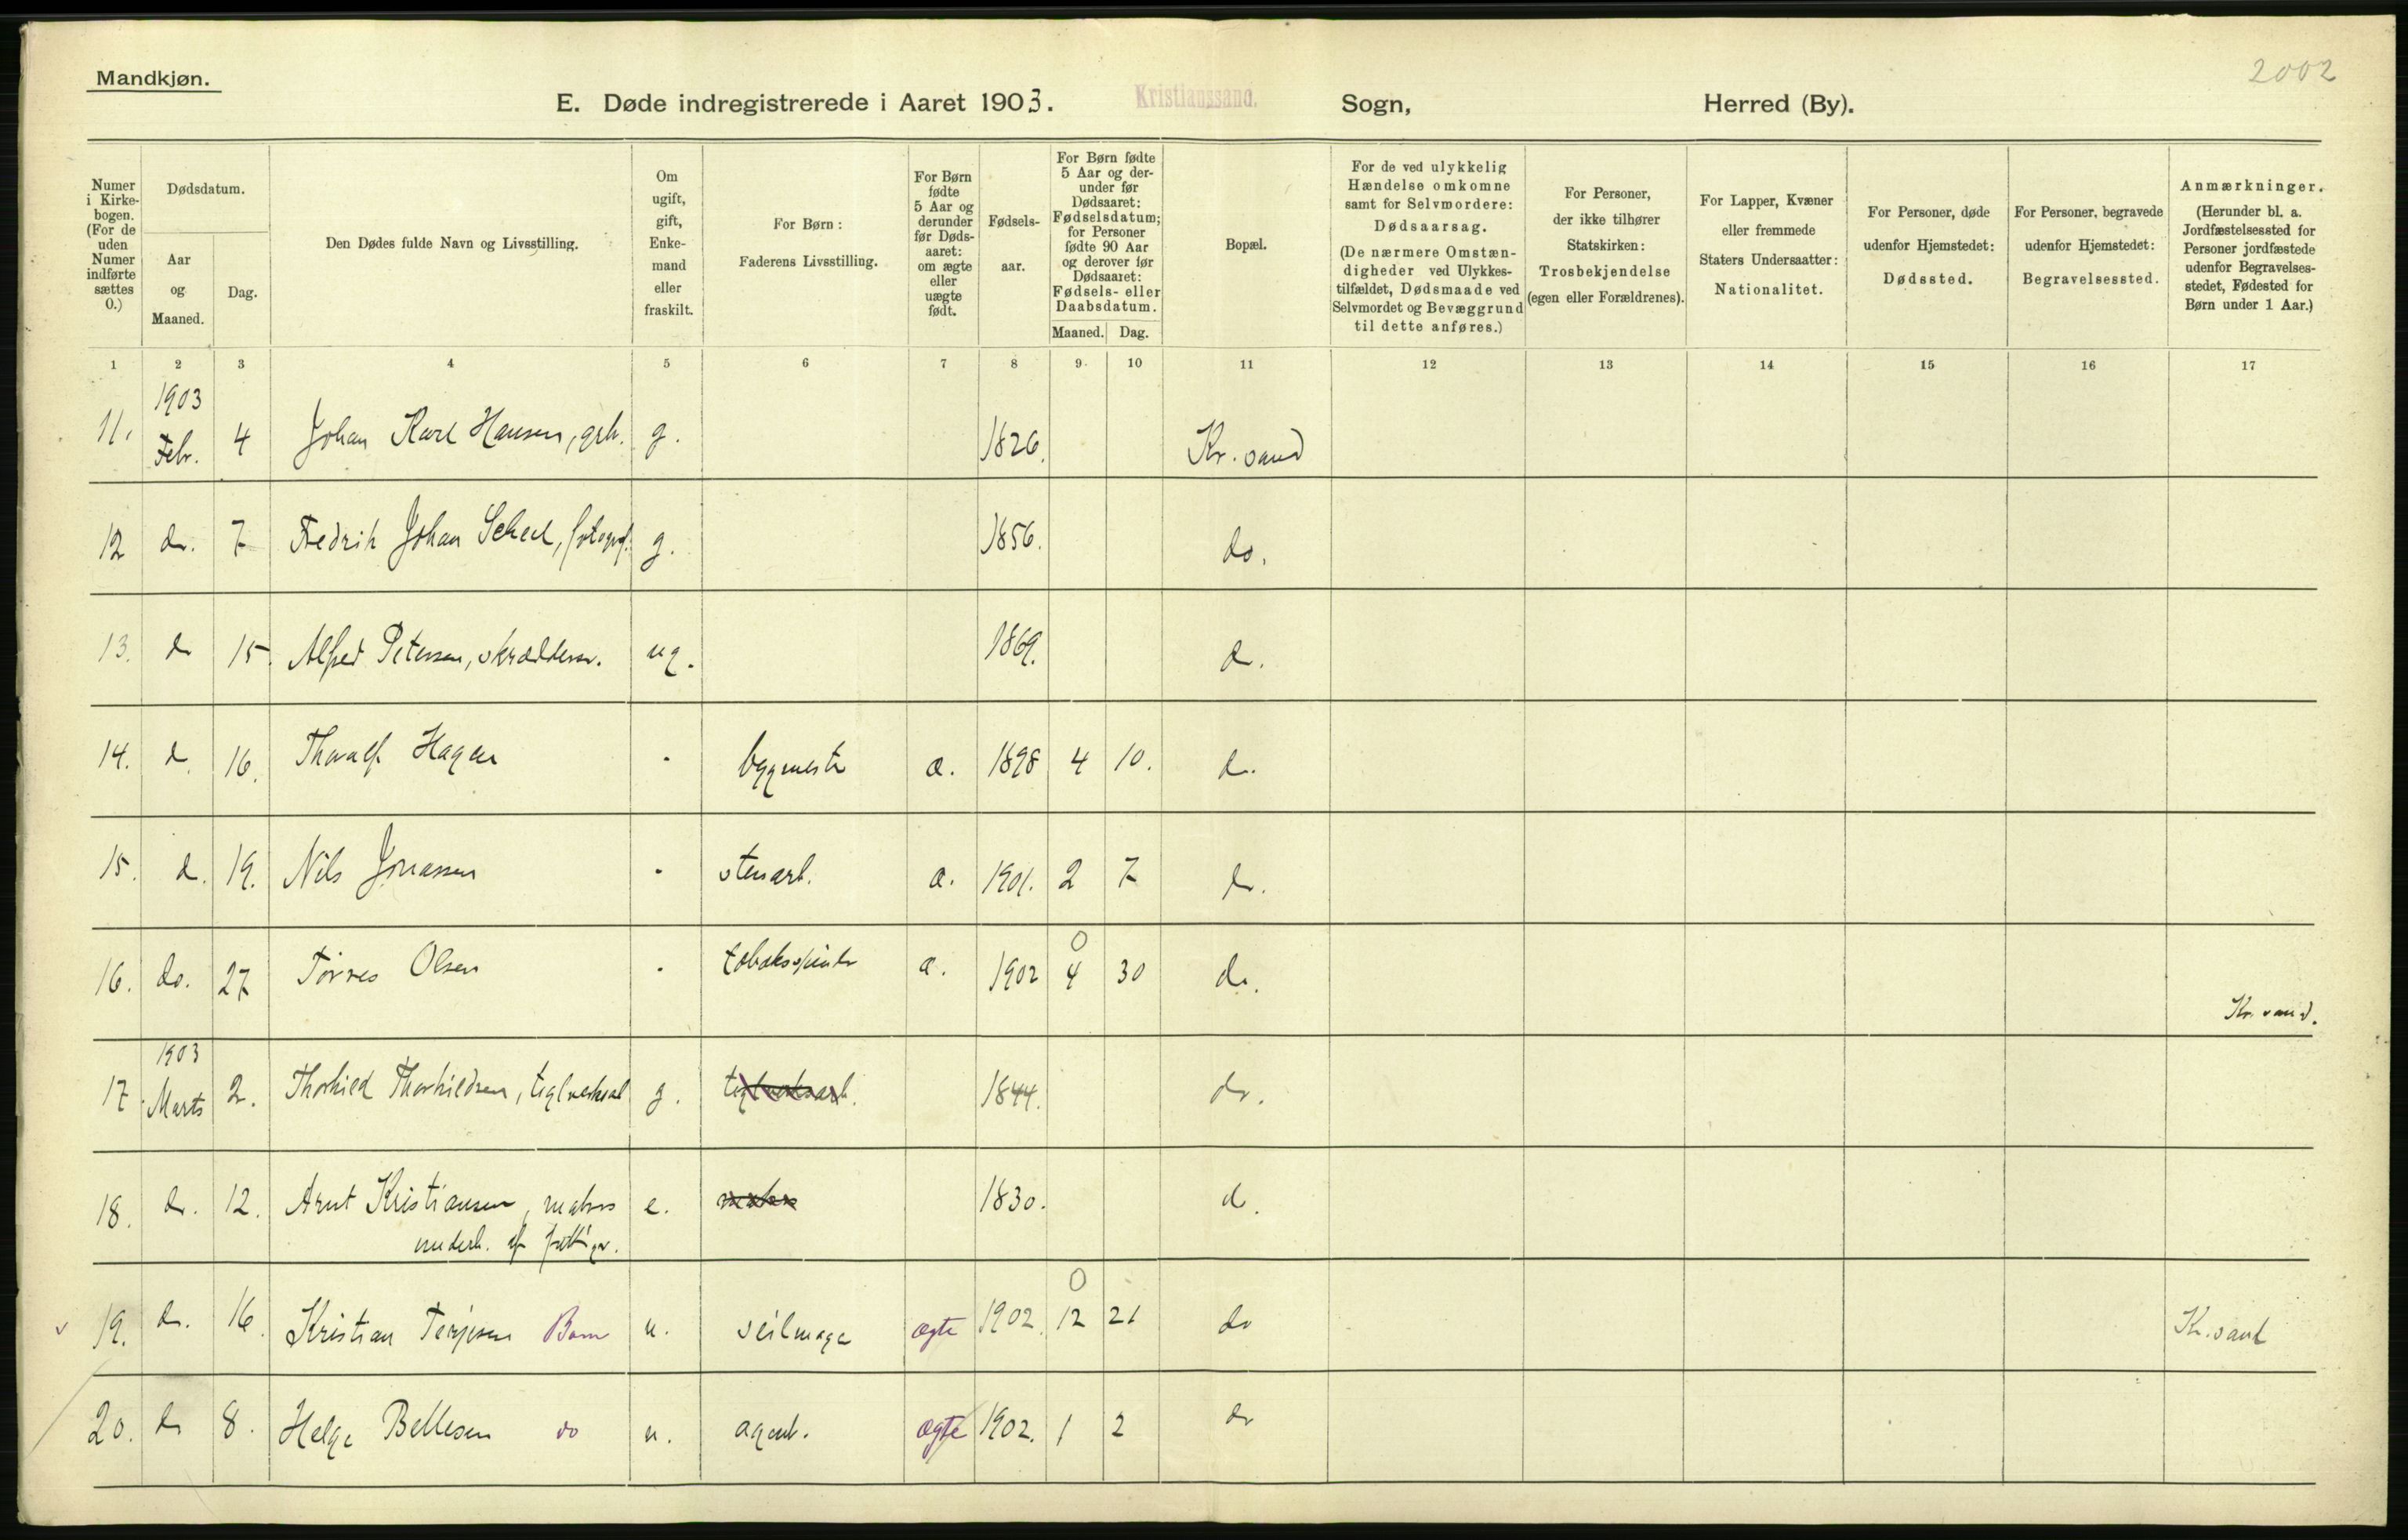 Mandkjøn.
2002
E. Døde indregistrerede i Aaret 1903. Kristianssand. Sogn, Herred (By).
Numer i Kirkebogen. (For de uden Numer indførte sættes 0.)
Dødsdatum.
Aar og Maaned.
Dag.
Den Dødes fulde Navn og Livsstilling.
Om ugift, gift, Enkemand eller fraskilt.
For Børn: Faderens Livsstilling.
For Børn fødte 5 Aar og derunder før Dødsaaret: om ægte eller uægte født.
Fødselsaar.
For Børn fødte 5 Aar og derunder før Dødsaaret: Fødselsdatum; for Personer fødte 90 Aar og derover før Dødsaaret: Fødsels- eller Daabsdatum.
Maaned. Dag.
Bopæl.
For de ved ulykkelig Hændelse omkomne samt for Selvmordere: Dødsaarsag. (De nærmere Omstændigheder ved Ulykkestilfældet, Dødsmaade ved Selvmordet og Bevæggrund til dette anføres.)
For Personer, der ikke tilhører Statskirken: Trosbekjendelse (egen eller Forældrenes).
For Lapper, Kvæner eller fremmede Staters Undersaatter: Nationalitet.
For Personer, døde udenfor Hjemstedet: Dødssted.
For Personer, begravede udenfor Hjemstedet: Begravelsessted.
Anmærkninger. (Herunder bl. a. Jordfæstelsessted for Personer jordfæstede udenfor Begravelsesstedet, Fødested for Børn under 1 Aar.)
1 2 3 4 5 6 7 8 9 10 11 12 13 14 15 16 17
11. 1903 Febr. 4 Johan Karl Hansen, grb. g. 1826. Kr.sand
12 do. 7 Fredrik Johan Scheel, fotograf. g. 1856. do.
13. do 15. Alfred Petersen, skræddersv. ug. 1869. do.
14. do. 16. Thoralf Hagen - bygmester æ. 1898 4 10. do.
15. do. 19. Nils Jonassen - stenarb. æ. 1901. 2 7 do.
16. do. 27 Törres Olsen - tobaksspinder æ. 1902 0 4 30 do. Kr.sand.
17 1903 Marts 2. Thorkild Thorkildsen, teglverksarb g. teglverksarb. 1844. do.
18. do. 12. Arnt Kristiansen, matros e. matros 1830. do.
underh. af fattigv.
19. do. 16. Kristian Terjesen Barn u. seilmager ægte 1902. 0 12 21 do Kr.sand
20. do 8. Helge Bellesen do u. agent. ægte 1902. 1 2 do